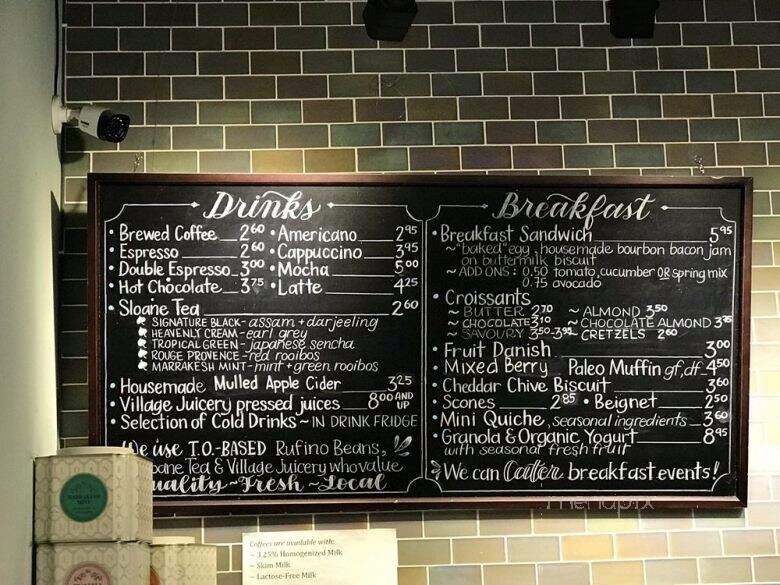 Drinks
Brewed Coffee 2.60
Espresso 2.60
Double Espresso 3.00
Hot Chocolate 3.75
Americano 2.95
Cappuccino 3.95
Mocha 5.00
Latte 4.25
Sloane Tea 2.60
SIGNATURE BLACK - assam + darjeeling
HEAVENLY CREAM - earl grey
TROPICAL GREEN - japanese sencha
ROUGE PROVENCE - red rooibos
MARRAKESH MINT - mint + green rooibos
Housemade Mulled Apple Cider 3.25
Village Juicery pressed juices 8.00 AND UP
Selection of Cold Drinks ~ IN DRINK FRIDGE
We use T.O.-BASED Rufino Beans,
Tea & Village Juicery who value
~Fresh ~Local
Breakfast
Breakfast Sandwich 5.95
~"baked" egg, housemade bourbon bacon jam
on buttermilk biscuit
~ ADD ONS: 0.50 tomato, cucumber OR spring mix
0.75 avocado
Croissants
~ BUTTER 2.70 ~ ALMOND 3.50
~ CHOCOLATE 3.10 ~ CHOCOLATE ALMOND
~ SAVOURY 3.50-3.95 ~ CRETZELS 2.60
Fruit Danish 3.00
Mixed Berry Paleo Muffin gf, df 4.50
Cheddar Chive Biscuit 3.60
Scones 2.85 • Beignet 2.50
Mini Quiche, seasonal ingredients 3.60
Granola & Organic Yogurt 8.95
with seasonal fresh fruit
We can Cater breakfast events!
menupix
MARRAKESH
MINT
Coffees are available with:
~ 3.25% Homogenized Milk
~ Skim Milk
~ Lactose-Free Milk